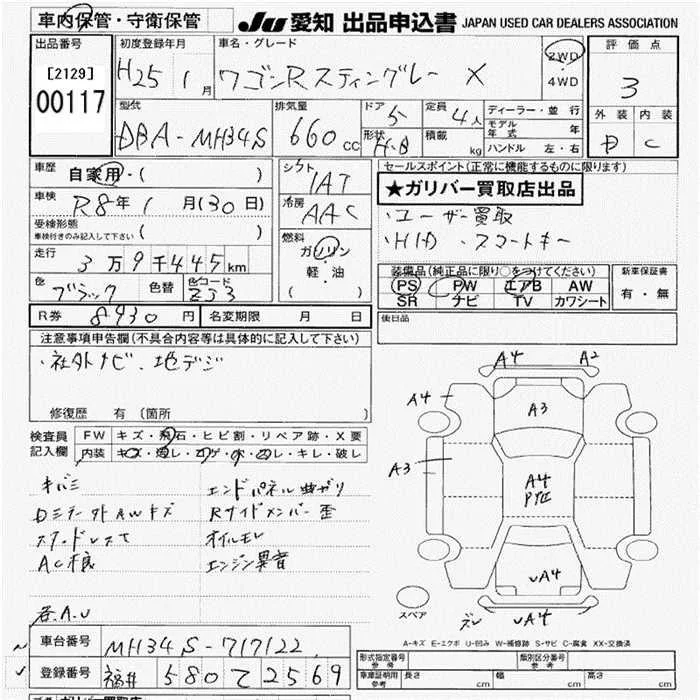 車内保管・守衛保管 JU 愛知 出品申込書 JAPAN USED CAR DEALERS ASSOCIATION
出品番号 初度登録年月 車名・グレード 2WD・4WD 評価点
[2129] 00117 H25年1月 ワゴンRスティングレー X 3
型式 排気量 ドア 5 定員 4人 ディーラー・並行 外装 内装
DBA-MH34S 660cc 形状 H・B 積載 kg モデル年式 年 D C
ハンドル 左・右
車歴 自家用・( ) シフト IAT セールスポイント(正常に機能するものに限ります)
★ガリバー買取店出品
車検 R8年1月(30日) 冷房 AAC ・ユーザー買取
受検形態 ( ) ・HID スマートキー
車検付きのみ記入して下さい
走行 3万9千445km 燃料 ガソリン・軽・油 ( )
装備品(純正品に限り○をつけてください) 新車保証書
色 ブラック 色替 色コード ZJ3 PS PW エアB AW 有・無
SR ナビ TV カワシート
R券 8930円 名変期限 月 日 後日品
注意事項申告欄(不具合内容等は具体的に記入して下さい)
・社外ナビ、地デジ
修復歴 有 (箇所 )
検査員記入欄 FW キズ・飛石・ヒビ割・リペア跡・X要
内装 キズ・汚レ・コゲ・穴・スレ・キレ・破レ
キバミ エンドパネル曲ガリ
Rサイドメンバー歪
オイルモレ
AC不良 エンジン異音
各A.U
A4 A2
A4 A3
A3 A4
vA4
スペア vA4
A-キズ E-エクボ U-凹み W-補修跡 S-サビ C-腐食 XX-交換済
車台番号 MH34S-717122 形式指定番号 参考 類別区分番号 参考
登録番号 福井 580 て 2569 車庫証明用参考 長さ cm 幅 cm 高さ cm
ガリバー買取店